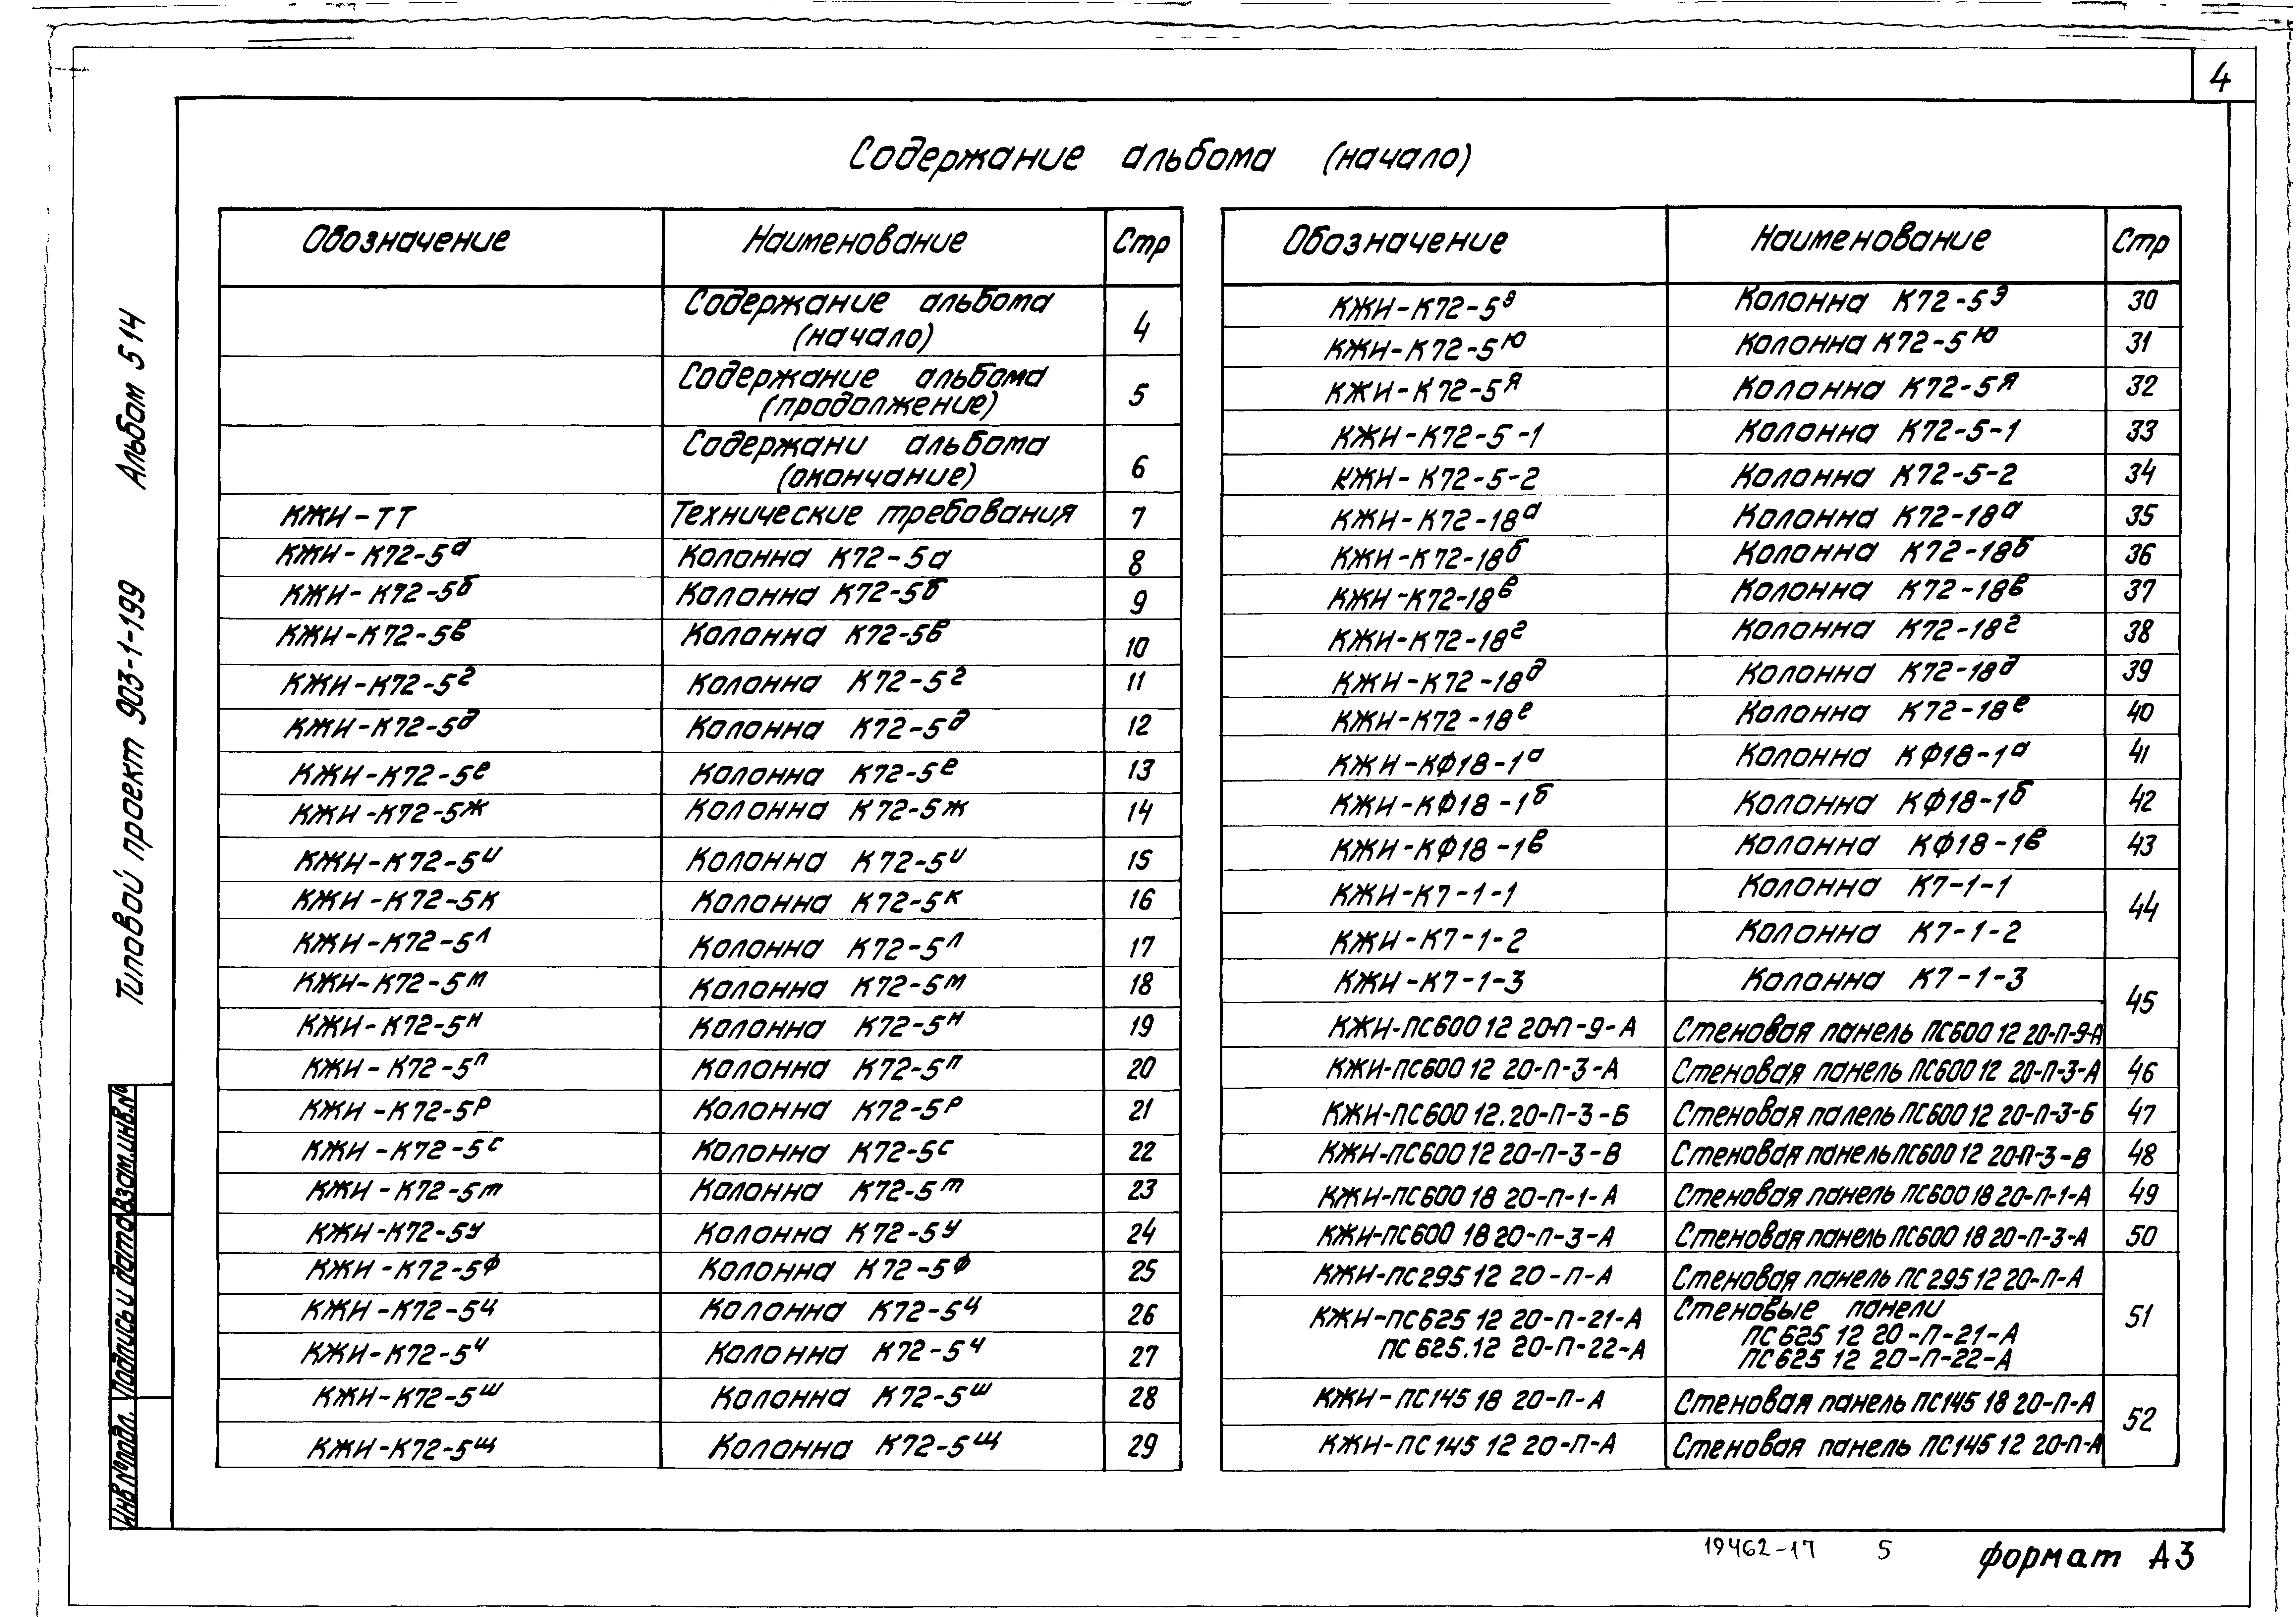 4
Содержание альбома (начало)
Обозначение Наименование Стр
Содержание альбома
(начало) 4
Содержание альбома
(продолжение) 5
Содержани альбома
(окончание) 6
КЖИ-ТТ Технические требования 7
КЖИ-К72-5а Колонна К72-5а 8
КЖИ-К72-5б Колонна К72-5б 9
КЖИ-К72-5в Колонна К72-5в 10
КЖИ-К72-5г Колонна К72-5г 11
КЖИ-К72-5д Колонна К72-5д 12
КЖИ-К72-5е Колонна К72-5е 13
КЖИ-К72-5ж Колонна К72-5ж 14
КЖИ-К72-5и Колонна К72-5и 15
КЖИ-К72-5к Колонна К72-5к 16
КЖИ-К72-5л Колонна К72-5л 17
КЖИ-К72-5м Колонна К72-5м 18
КЖИ-К72-5н Колонна К72-5н 19
КЖИ-К72-5п Колонна К72-5п 20
КЖИ-К72-5р Колонна К72-5р 21
КЖИ-К72-5с Колонна К72-5с 22
КЖИ-К72-5т Колонна К72-5т 23
КЖИ-К72-5у Колонна К72-5у 24
КЖИ-К72-5ф Колонна К72-5ф 25
КЖИ-К72-5ц Колонна К72-5ц 26
КЖИ-К72-5ч Колонна К72-5ч 27
КЖИ-К72-5ш Колонна К72-5ш 28
КЖИ-К72-5щ Колонна К72-5щ 29
Обозначение Наименование Стр
КЖИ-К72-5э Колонна К72-5э 30
КЖИ-К72-5ю Колонна К72-5ю 31
КЖИ-К72-5я Колонна К72-5я 32
КЖИ-К72-5-1 Колонна К72-5-1 33
КЖИ-К72-5-2 Колонна К72-5-2 34
КЖИ-К72-18а Колонна К72-18а 35
КЖИ-К72-18б Колонна К72-18б 36
КЖИ-К72-18в Колонна К72-18в 37
КЖИ-К72-18г Колонна К72-18г 38
КЖИ-К72-18д Колонна К72-18д 39
КЖИ-К72-18е Колонна К72-18е 40
КЖИ-КФ18-1а Колонна КФ18-1а 41
КЖИ-КФ18-1б Колонна КФ18-1б 42
КЖИ-КФ18-1в Колонна КФ18-1в 43
КЖИ-К7-1-1 Колонна К7-1-1 44
КЖИ-К7-1-2 Колонна К7-1-2
КЖИ-К7-1-3 Колонна К7-1-3 45
КЖИ-ПС600 12 20-П-9-А Стеновая панель ПС600 12 20-П-9-А
КЖИ-ПС600 12 20-П-3-А Стеновая панель ПС600 12 20-П-3-А 46
КЖИ-ПС600 12.20-П-3-Б Стеновая палель ПС600 12 20-П-3-Б 47
КЖИ-ПС600 12 20-П-3-В Стеновая панель ПС600 12 20-П-3-В 48
КЖИ-ПС600 18 20-П-1-А Стеновая панель ПС600 18 20-П-1-А 49
КЖИ-ПС600 18 20-П-3-А Стеновая панель ПС600 18 20-П-3-А 50
КЖИ-ПС295 12 20-П-А Стеновая панель ПС295 12 20-П-А 51
КЖИ-ПС625 12 20-П-21-А Стеновые панели
ПС625 12 20-П-21-А
ПС625.12 20-П-22-А ПС625 12 20-П-22-А
КЖИ-ПС145 18 20-П-А Стеновая панель ПС145 18 20-П-А 52
КЖИ-ПС145 12 20-П-А Стеновая панель ПС145 12 20-П-А
Типовой проект 903-1-199 Альбом 5 14
Инв№подл. Подпись и дата Взам.инв.№
19462-17 5 формат А3